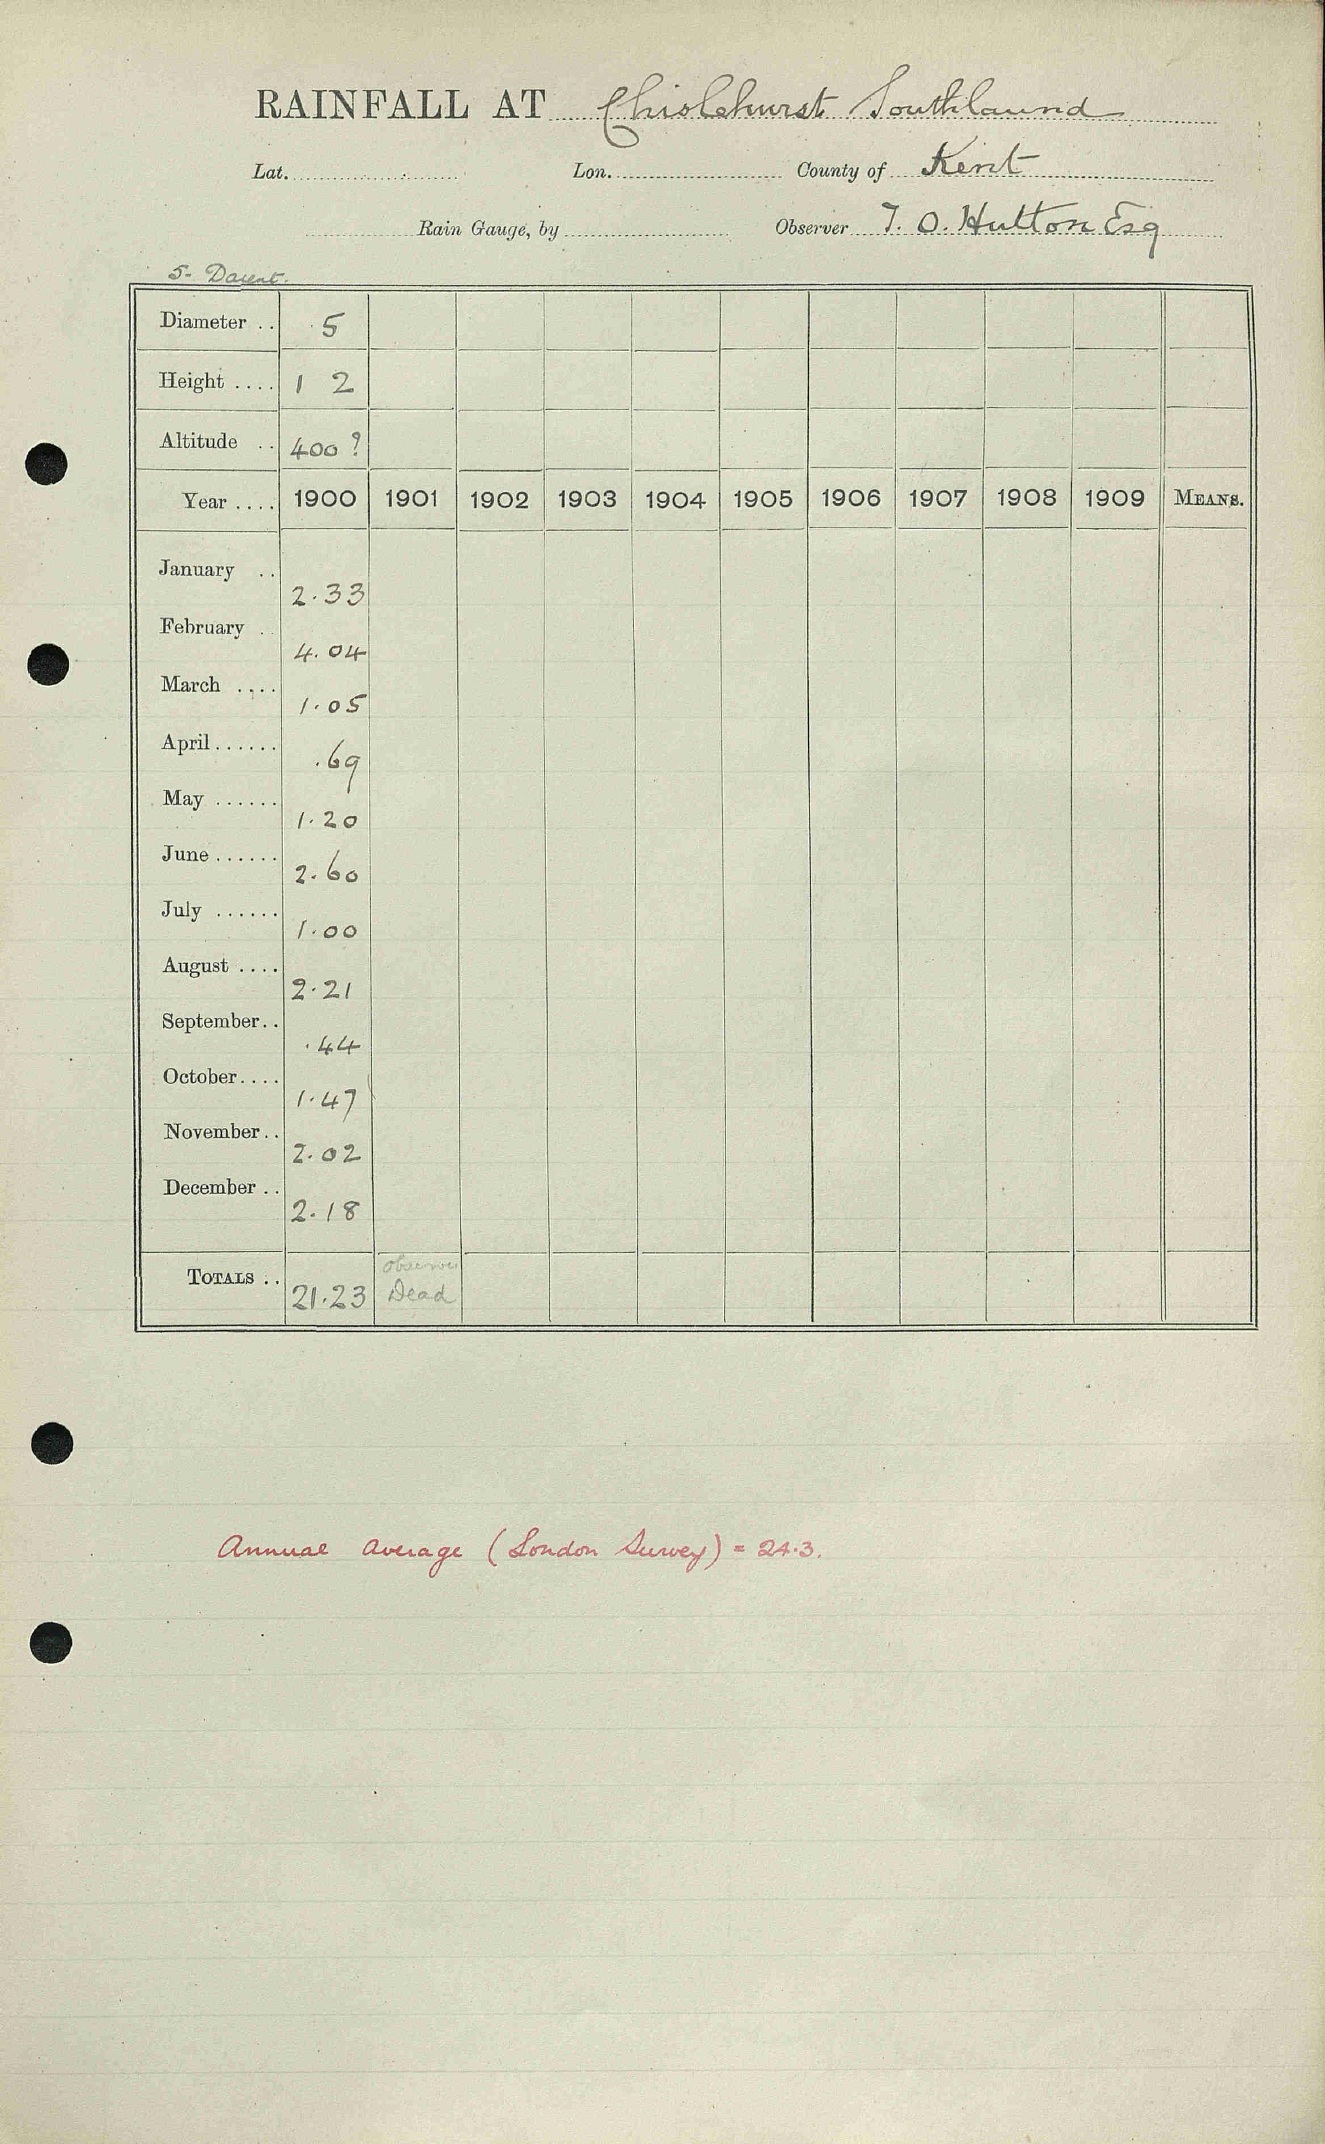 RAINFALL AT Chislehurst Southlaund
Lat. Lon. County of Kent
Rain Gauge, by Observer T. O. Hutton Esq
5- Darent.
Diameter .. 5
Height .... 1 2
Altitude .. 400 ?
Year .... 1900 1901 1902 1903 1904 1905 1906 1907 1908 1909 MEANS.
January .. 2.33
February . 4.04
March .... 1.05
April ...... .69
May ...... 1.20
June ...... 2.60
July ...... 1.00
August .... 2.21
September .. .44
October .... 1.47
November .. 2.02
December .. 2.18
TOTALS .. 21.23 Observer Dead
Annual average (London Survey) = 24.3.